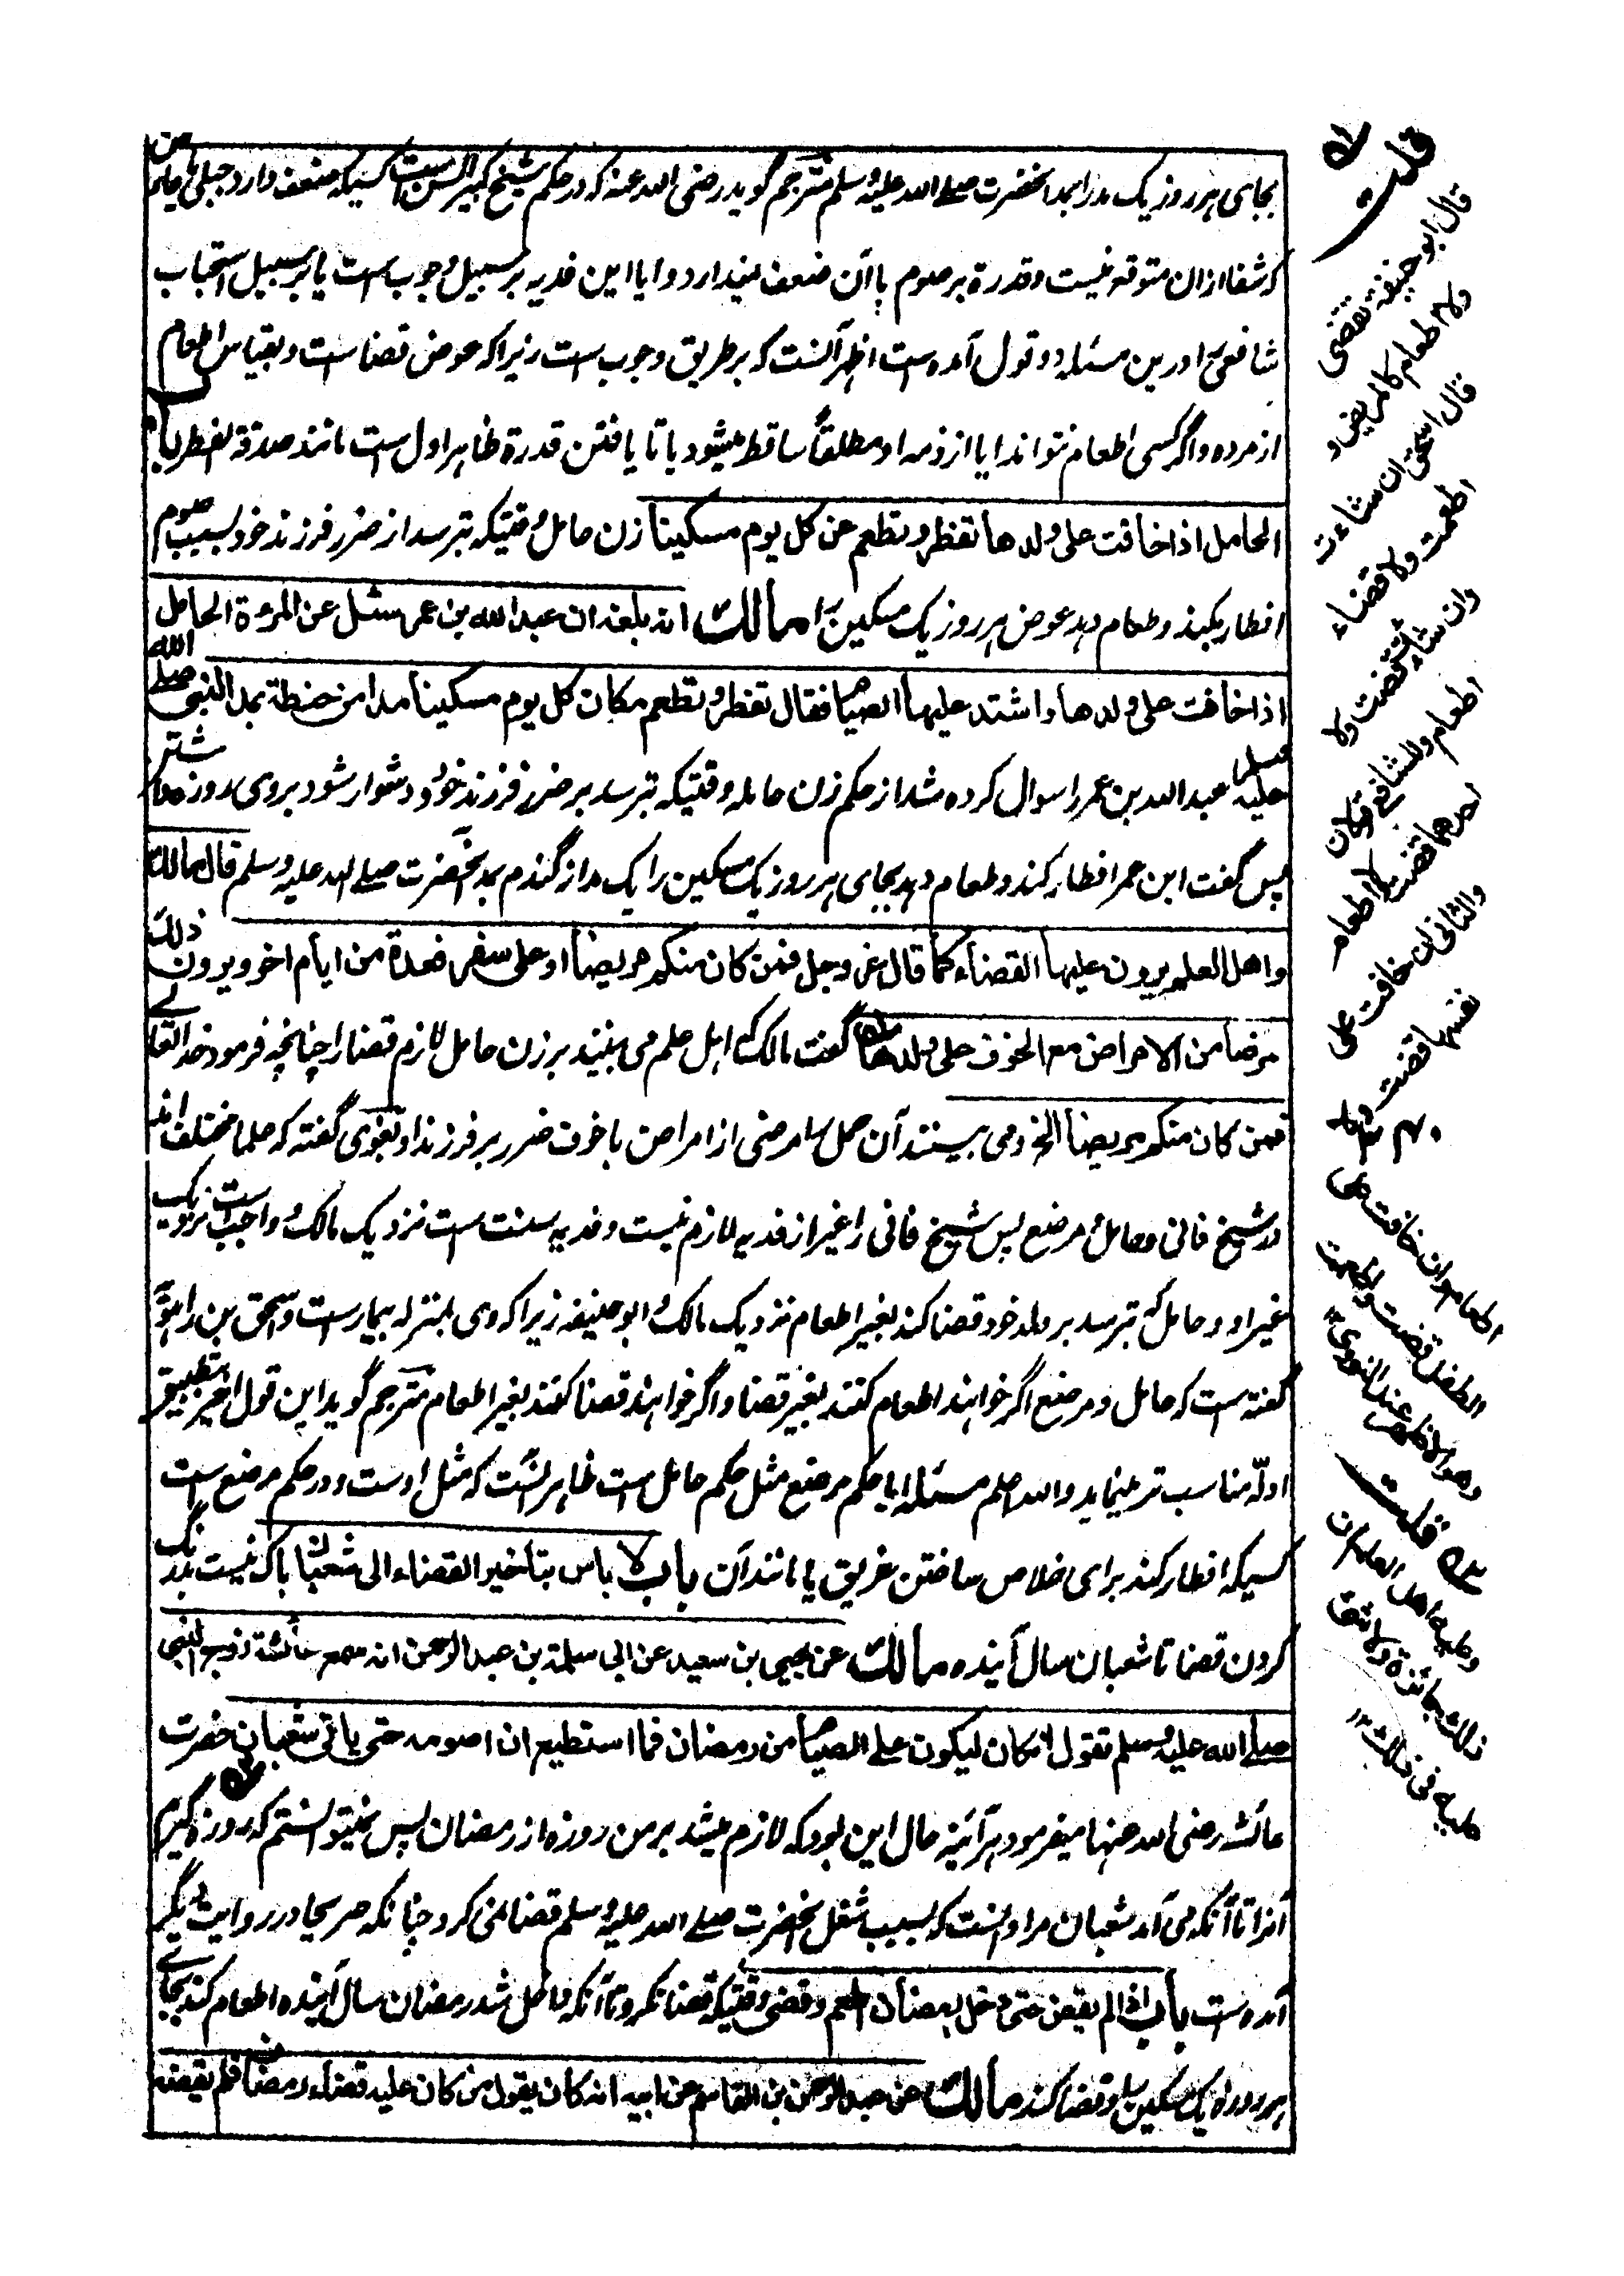 بجای هر روز یک مد را بمد آنحضرت صلے الله علیه وسلم مترجم گوید رضی الله عنه که در حکم شیخ کبیر السن است کسیکه ضعف دارد جبلی یا
که شفا ازان متوقع نیست و قدرة بر صوم با آن ضعف نیندارد و ایا این فدیه بر سبیل وجوب است یا بر سبیل استحباب
شافعی را درین مسئله دو قول آمده است اظهر آنست که بر طریق وجوب است زیرا که عوض قضا ست و بقیاس اطعام
از مرده و اگر کسی اطعام نتواند ایا از ذمه او مطلقاً ساقط میشود یا تا یافتن قدرة ظاهر اول است مانند صدقة الفطر باب
الحامل اذا خافت علی ولدها تفطر و تطعم عن کل یوم مسکیناً زن حامل وقتیکه بترسد از ضرر فرزند خود بسبب صوم
افطار بکند و طعام دهد عوض هر روز یک مسکین را مالك انه بلغه ان عبد الله بن عمر سئل عن المرءة الحامل
اذا خافت علی ولدها و اشتد علیها الصیام فقال تفطر و تطعم مکان کل یوم مسکیناً مدا من حنطة بمد النبی صلے الله
علیه وسلم عبد الله بن عمر را سوال کرده شد از حکم زن حامله وقتیکه بترسد بر ضرر فرزند خود و دشوار شود بر وی روزه داشتن
پس گفت ابن عمر افطار کند و طعام دهد بجای هر روز یک مسکین را یک مد از گندم بمد آنحضرت صلے الله علیه وسلم قال مالك
و اهل العلم یرون علیها القضاء کما قال عز وجل فمن کان منکم مریضاً او علی سفر فعدة من ایام اخر و یرون ذلك
مرضاً من الامراض مع الخوف علی ولدها گفت مالک که اهل علم می بینند بر زن حامل لازم قضا را چنانچه فرمود خدا تعالے
فمن کان منکم مریضاً الخ و می بینند آن حمل را مرضی از امراض با خوف ضرر بر فرزند او بغوی گفته که علما مختلف اند
در شیخ فانی و حامل و مرضع پس شیخ فانی را غیر از فدیه لازم نیست و فدیه سنت است نزدیک مالک و واجب است نزدیک
غیر او و حامل که بترسد بر ولد خود قضا کند بغیر اطعام نزدیک مالک و ابو حنیفه زیرا که وی بمنزله بیمار ست و اسحق بن راهویه
گفته است که حامل و مرضع اگر خواهند اطعام کنند بغیر قضا و اگر خواهند قضا کنند بغیر اطعام مترجم گوید این قول اخیر بتطبیق
ادله مناسب تر مینماید و الله اعلم مسئله ایا حکم مرضع مثل حکم حامل است ظاهر آنست که مثل اوست و در حکم مرضع است
کسیکه افطار کند برای خلاص ساختن غریق یا مانند آن باب لا باس بتاخیر القضاء الی شعبان باک نیست بدرنگ
کردن قضا تا شعبان سال آینده مالك عن یحیی بن سعید عن ابی سلمة بن عبد الرحمن انه سمع عائشة زوج النبی
صلے الله علیه وسلم تقول ان کان لیکون علی الصیام من رمضان فما استطیع ان اصومه حتی یاتی شعبان حضرت
عائشه رضی الله عنها میفرمود هر آئینه حال این بود که لازم میشد بر من روزه از رمضان پس نمیتوانستم که روزه گیرم
آنرا تا آنکه می آمد شعبان مراد آنست که بسبب شغل آنحضرت صلے الله علیه وسلم قضا نمی کرد چنانکه صریحا در روایت دیگر
آمده ست باب اذا لم یقض حتی دخل رمضان اطعم و قضی وقتیکه قضا نکرد تا آنکه داخل شد رمضان سال آینده اطعام کند بجای
هر روز یک مسکین را و قضا کند مالك عن عبد الرحمن بن القاسم عن ابیه انه کان یقول من کان علیه قضاء رمضان فلم یقضه
قلت
قال ابو حنیفة تقضی
ولا اطعام کالمریض و
قال اسحق ان شاءت
اطعمت ولا قضاء
وان شاءت قضت ولا
اطعام وللشافعی قولان
احدهما قضت بلا اطعام
والثانی ان خافت علی
نفسها قضت ولا
اطعام وان خافت علی
الطفل قضت و اطعمت
وهو الاظهر عند النووی
قلت
وعلیه اهل العلم ان
ذلك جائزة ولا شئ
علیه فی ذلك ۱۲